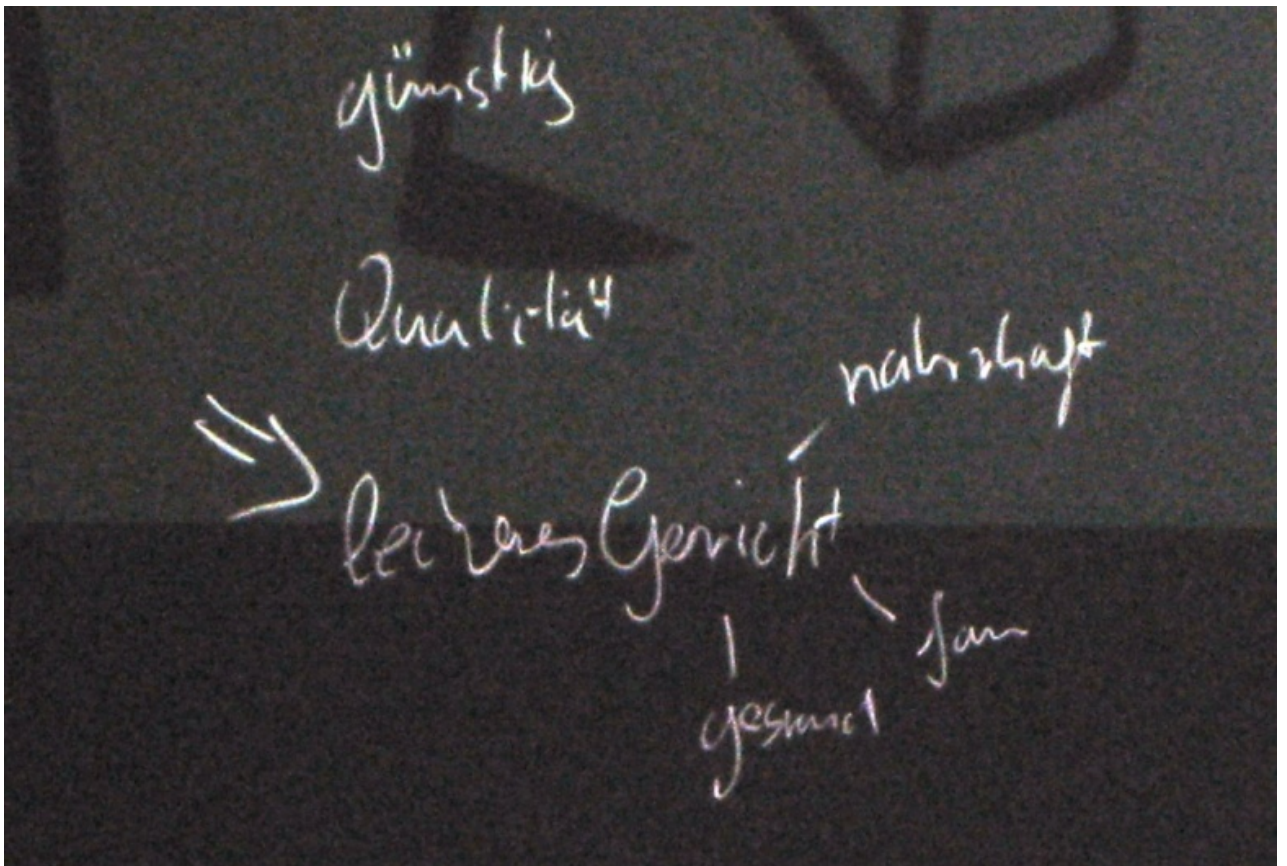 günstig
Qualität
nahrhaft
leckeres Gericht
fair
gesund